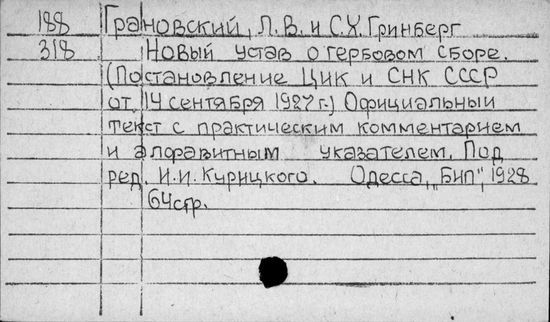 188 Грановский, Л.В. и С.Х. Гринберг
318 Новый устав о гербовом сборе.
(Постановление ЦИК и СНК СССР
от 14 сентября 1927 г.) Официальный
текст с практическим комментарием
и алфавитным указателем. Под
ред. И.И. Курицкого. Одесса, "Бип", 1928
64 стр.